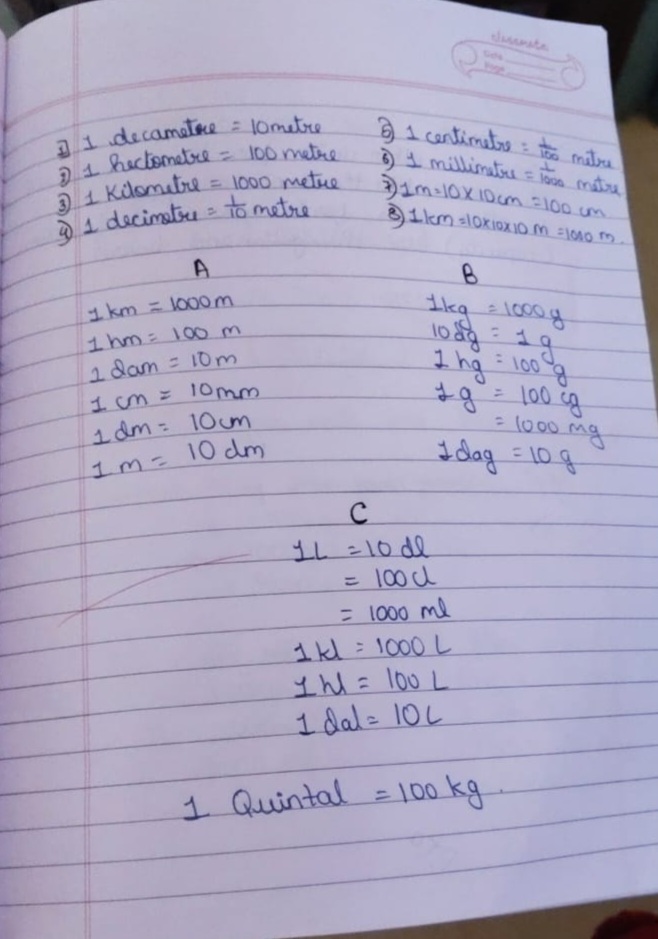 classmate
Date
Page
1) 1 decametre = 10metre
2) 1 hectometre = 100 metre
3) 1 Kilometre = 1000 metre
4) 1 decimetre = 1/10 metre
5) 1 centimetre = 1/100 metre
6) 1 millimetre = 1/1000 metre
7) 1m=10X10cm = 100 cm
8) 1km=10x10x10 m =1000 m.
A
1 km = 1000m
1 hm = 100 m
1 dam = 10m
1 cm = 10mm
1 dm = 10cm
1 m = 10 dm
B
1kg = 1000g
10dg = 1g
1 hg = 100g
1g = 100 cg
= 1000 mg
1dag = 10g
C
1L = 10 dl
= 100cl
= 1000 ml
1kl = 1000 L
1hl = 100 L
1 dal = 10L
1 Quintal = 100 kg.